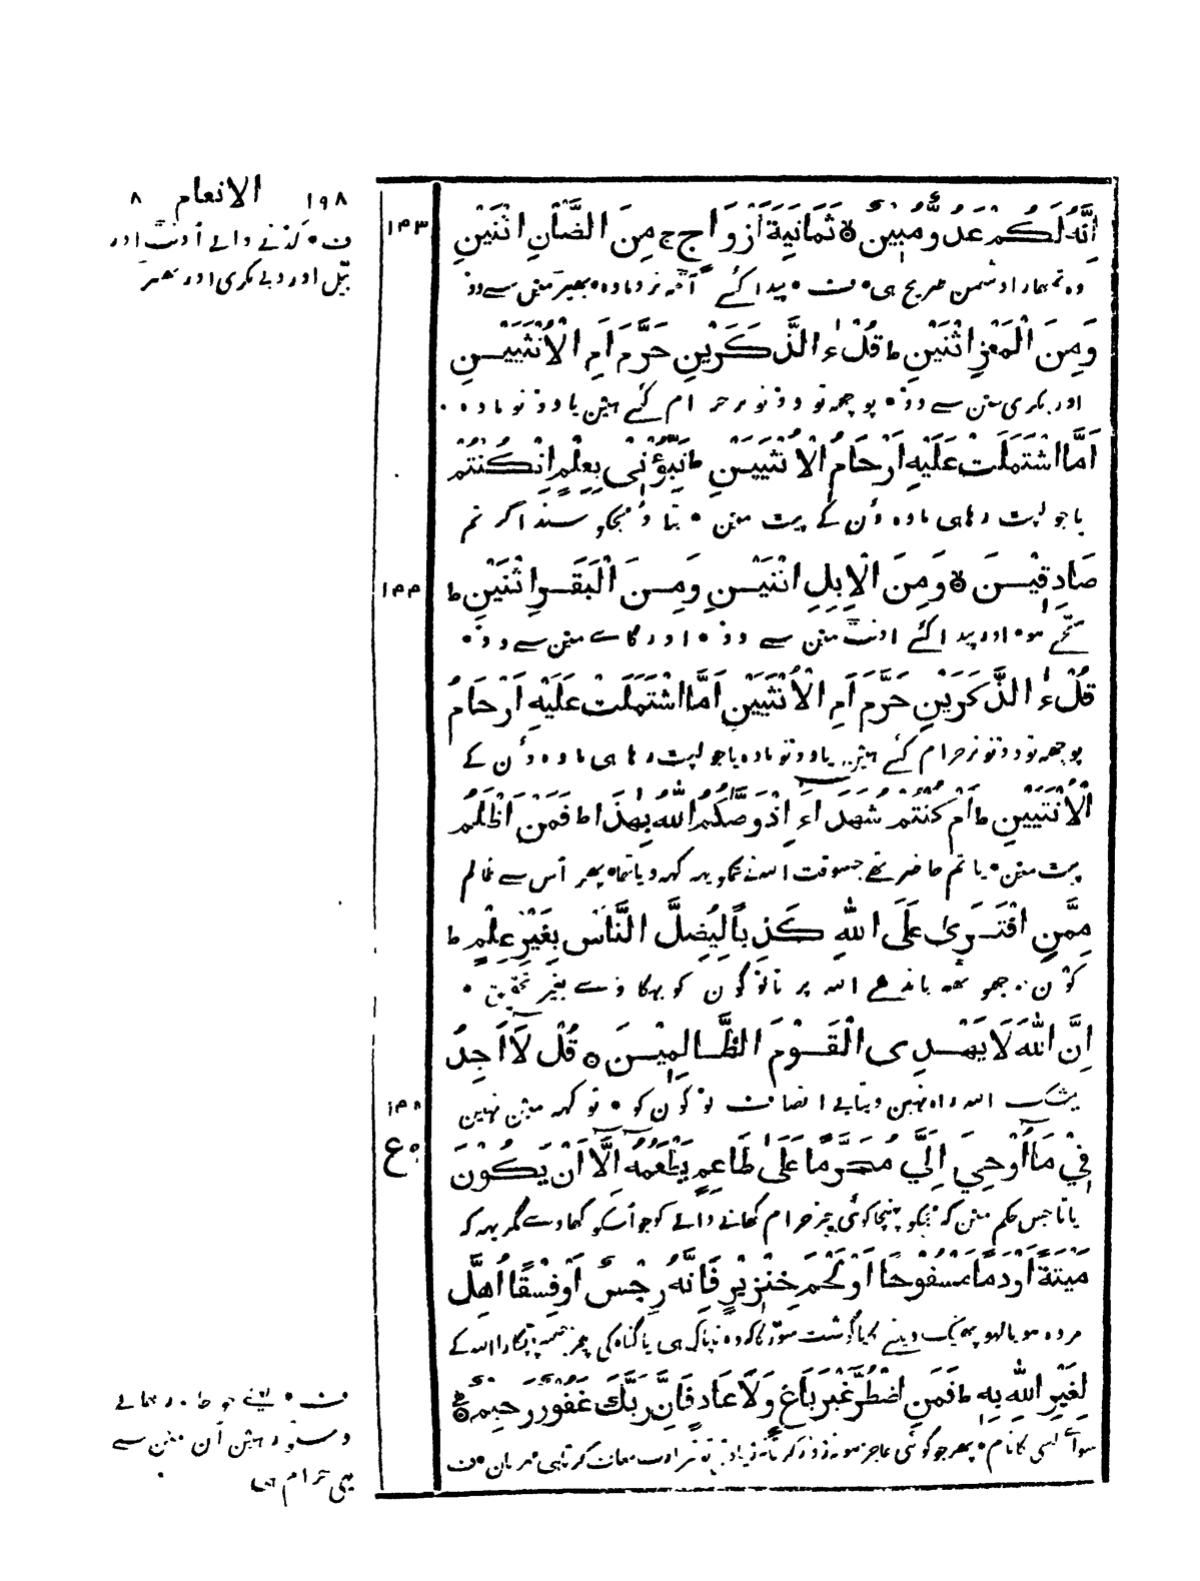 ١٩٨ الانعام ٨
ف • لدنے والے أونت اور
بیل اور دبے بکری اور بھیر
١٤٣
اِنَّهُ لَكُمْ عَدُوٌّ مُّبِيْنٌ ۞ ثَمَانِيَةَ اَزْوَاجٍ ج مِنَ الضَّأْنِ اثْنَيْنِ
وہ تمہارا دشمن صریح ہی • ف • پیدا کئے آٹھ نر و مادہ • بھیر مین سے دو
وَمِنَ الْمَعْزِ اثْنَيْنِ ط قُلْ ءٰالذَّكَرَيْنِ حَرَّمَ اَمِ الْاُنْثَيَيْنِ
اور بکری مین سے دو • پوچھ تو دونو نر حرام کئے ہین یا دونو مادہ •
اَمَّا اشْتَمَلَتْ عَلَيْهِ اَرْحَامُ الْاُنْثَيَيْنِ ط نَبِّؤُنِىْ بِعِلْمٍ اِنْ كُنْتُمْ
یا جو لپت رہا ہی مادہ وُن کے پیت مین • بتاؤ مجکو سند اگر تم
صَادِقِيْنَ ۞ وَمِنَ الْاِبِلِ اثْنَيْنِ وَمِنَ الْبَقَرِ اثْنَيْنِ ط
١٤٤
سچے ہو • اور پیدا کئے اونت مین سے دو • اور گاے مین سے دو •
قُلْ ءٰالذَّكَرَيْنِ حَرَّمَ اَمِ الْاُنْثَيَيْنِ اَمَّا اشْتَمَلَتْ عَلَيْهِ اَرْحَامُ
پوچھ تو دونو نر حرام کئے ہین یا دونو مادہ یا جو لپت رہا ہی مادہ وُن کے
الْاُنْثَيَيْنِ ط اَمْ كُنْتُمْ شُهَدَاءَ اِذْ وَصّٰكُمُ اللّٰهُ بِهٰذَا ط فَمَنْ اَظْلَمُ
پیت مین • یا تم حاضر تھے جسوقت اللہ نے تمکو یہہ کہہ دیا تھا • پھر اُس سے ظالم
مِمَّنِ افْتَرٰى عَلَى اللّٰهِ كَذِبًا لِيُضِلَّ النَّاسَ بِغَيْرِ عِلْمٍ ط
کون • جھوتھہ باندھے اللہ پر تا لوگون کو بہکاوے بغیر تحقیق •
اِنَّ اللّٰهَ لَا يَهْدِى الْقَوْمَ الظَّالِمِيْنَ ۞ قُلْ لَا اَجِدُ
بیشک اللہ راہ نہین دیتا بے انصاف لوگون کو • تو کہہ مین نہین
١٤٥
ع
فِىْ مَا اُوْحِىَ اِلَىَّ مُحَرَّمًا عَلٰى طَاعِمٍ يَطْعَمُهُ اِلَّا اَنْ يَكُوْنَ
پاتا جس حکم مین کہ مجکو پہنچا کوئی چیز حرام کھانے والے کو جو اُسکو کھاوے مگر یہہ کہ
مَيْتَةً اَوْ دَمًا مَسْفُوْحًا اَوْ لَحْمَ خِنْزِيْرٍ فَاِنَّهُ رِجْسٌ اَوْ فِسْقًا اُهِلَّ
مردہ ہو یا لہو پھینک دینے کا یا گوشت سور کا کہ وہ ناپاک ہی یا گناہ کی چیز جسپر پکارا اللہ کے
لِغَيْرِ اللّٰهِ بِهٖ ط فَمَنِ اضْطُرَّ غَيْرَ بَاغٍ وَلَا عَادٍ فَاِنَّ رَبَّكَ غَفُوْرٌ رَحِيْمٌ ۞
سواے کسی کا نام • پھر جو کوئی عاجز ہو نہ زور کرتا نہ زیادتی تو تیرا رب معاف کرتا ہی مہربان • ف
ف • یعنے جو جانور کھانے
دستور ہین اُن مین سے
یہی حرام ہی